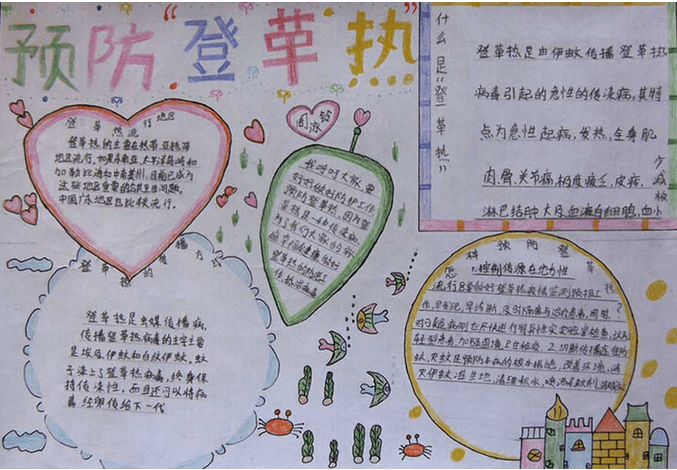 预防"登革热"
什么是"登革热"
登革热是由伊蚊传播登革热
病毒引起的急性的传染病,其特
点为急性起病,发热,全身肌
肉、骨、关节痛,极度疲乏,皮疹,
淋巴结肿大及血液白细胞,血小
板减少
登革热流行地区
登革热的主要在热带、亚热带
地区流行,
加勒比海和中南美州,
这些地区重要的公共卫生问题,
中国广东地区也比较流行。
我呼吁大家要
好好做好防护工作
预防登革热,因为登
革热是一种传染病,
为了我们大家的
登革热的传播方式
登革热是虫媒传播病,
传播登革热病毒的主宰主要
是埃及伊蚊和白纹伊蚊,蚊
子染上登革热病毒,终身保
持传染性,而且还可以将病
毒经卵传给下一代
怎样预防登革热?
1.控制传源在地方性
流行区要做好登革热疫情监测预报工
作,早发现,早诊断,及时隔离与治疗患者,同时,
对可疑病例应尽快进行
2.切断传播途径
灭伊蚊滋生地,清理积水,